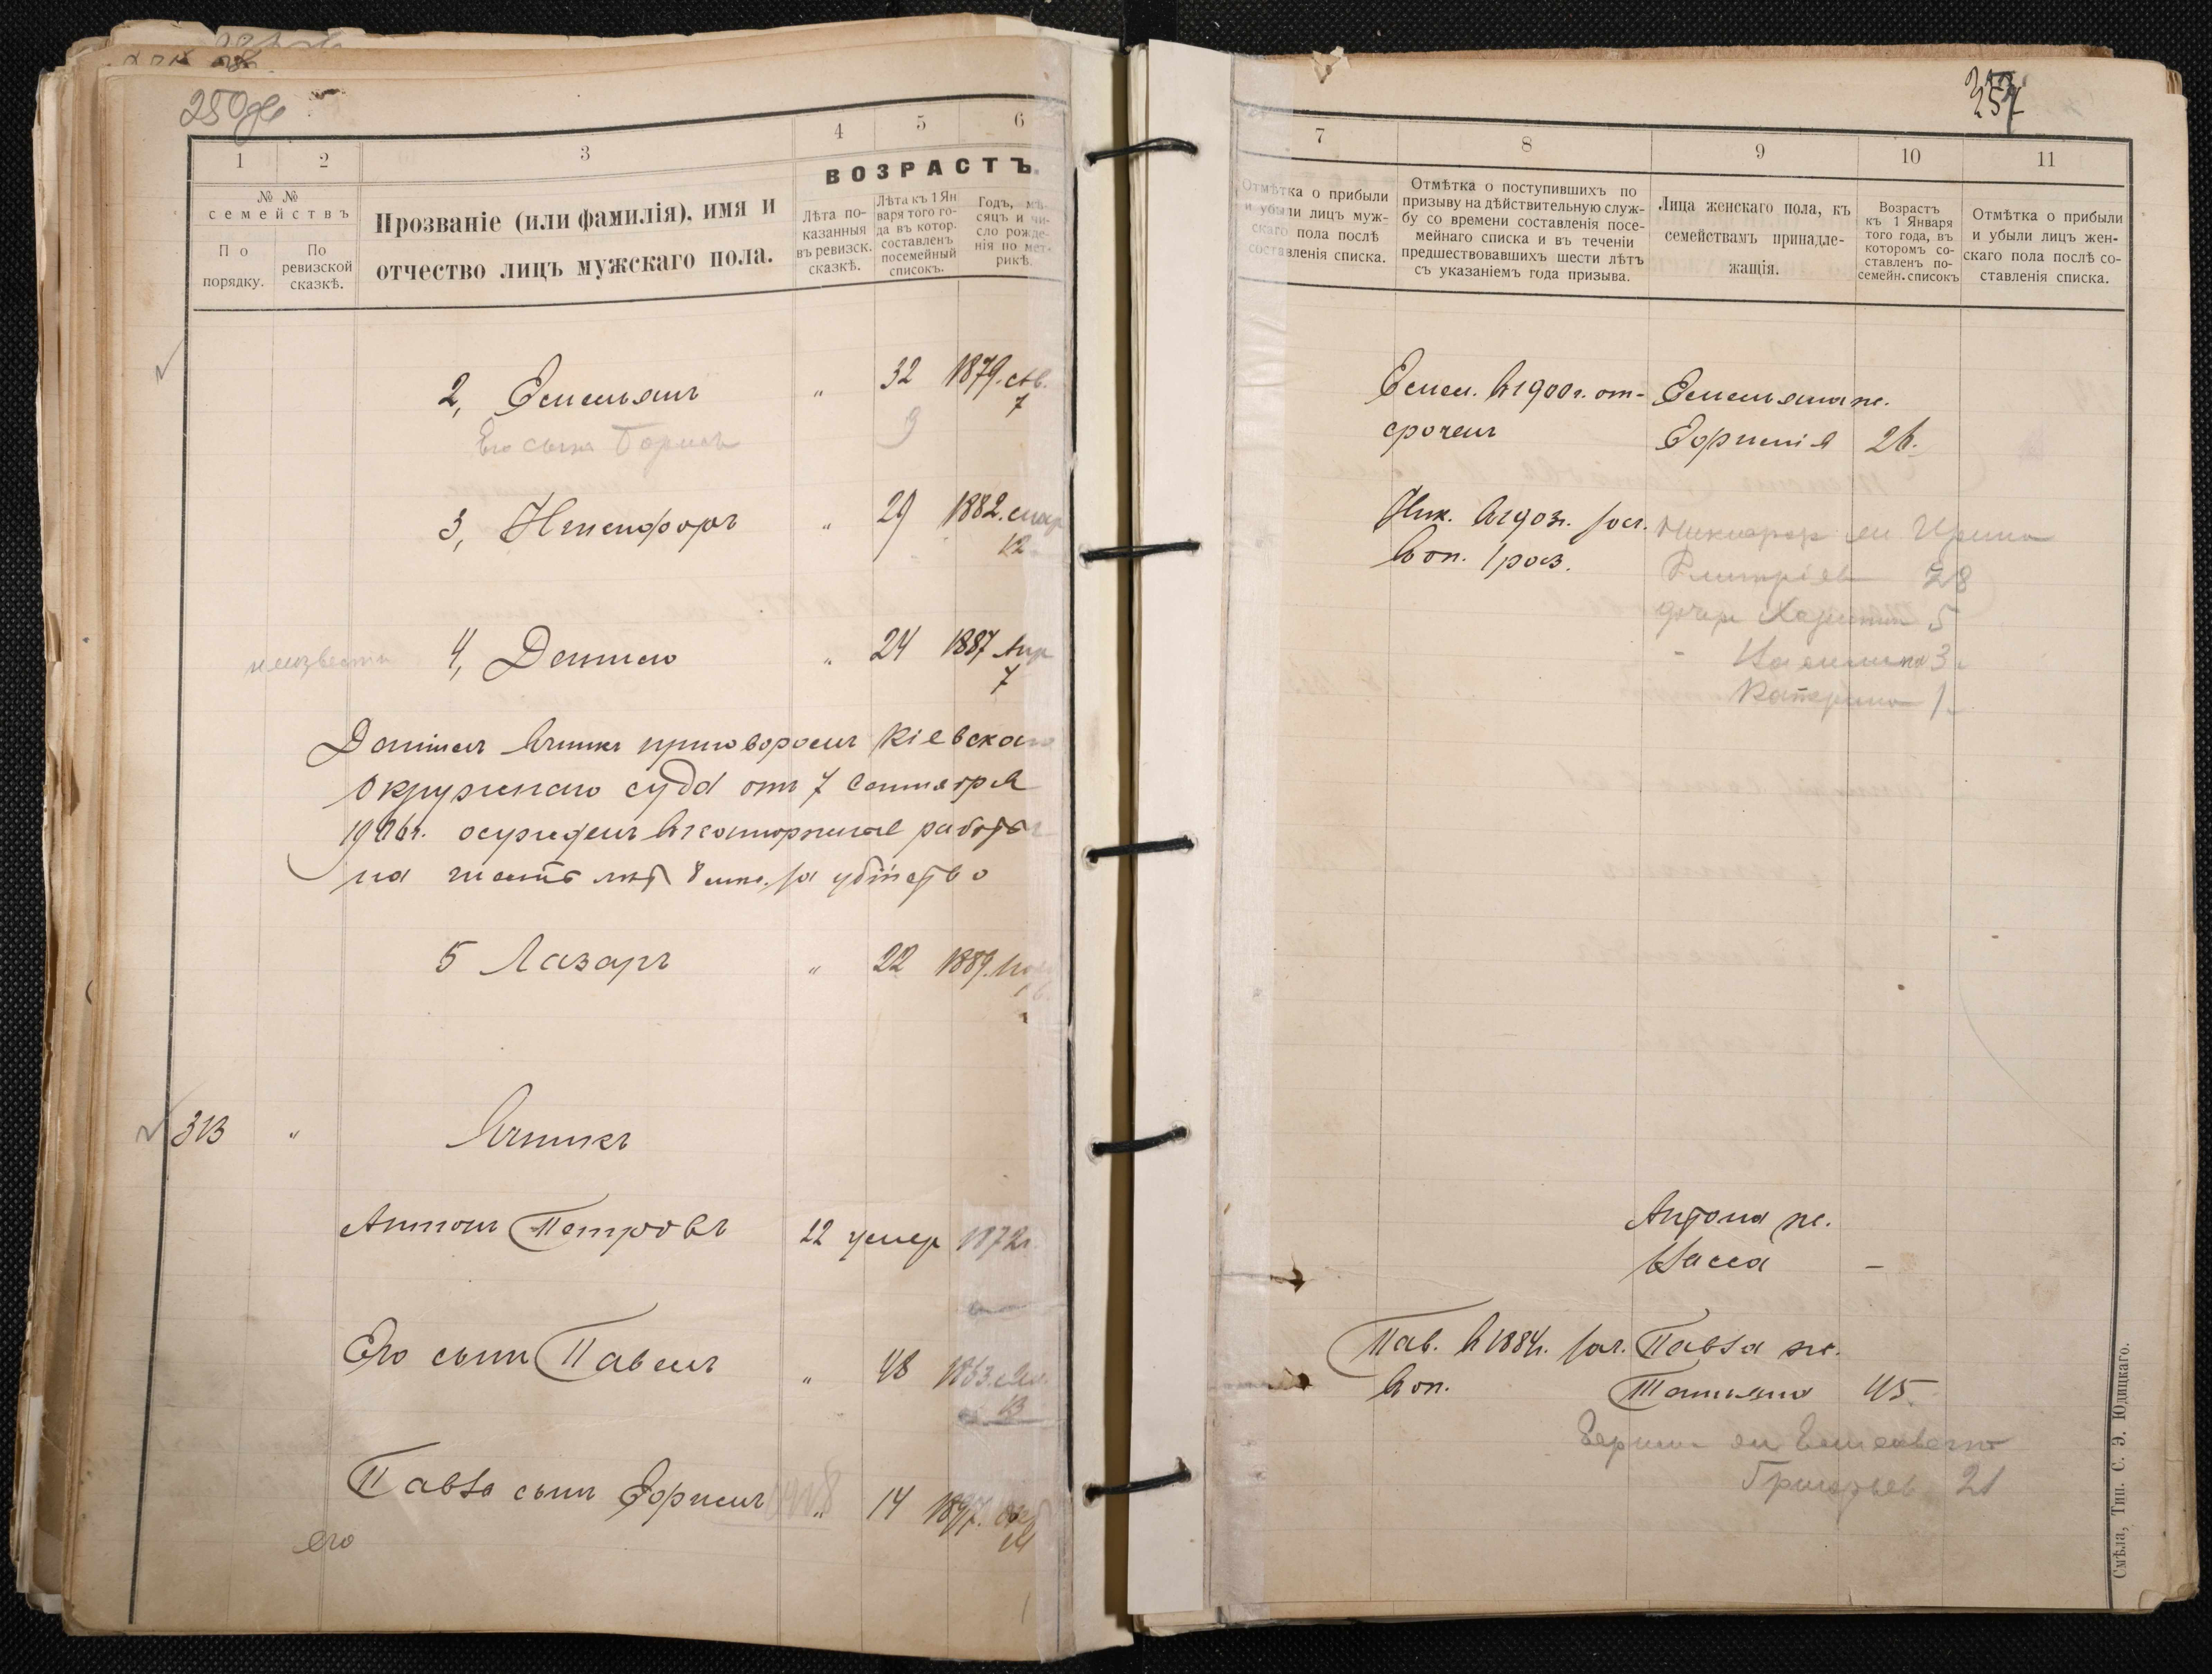 250об
1 2 3 4 5 6
ВОЗРАСТЪ.
№ №
семействъ
По
порядку.
По
ревизской
сказкѣ.
Прозваніе (или фамилія), имя и
отчество лицъ мужскаго пола.
Лѣта по-
казанныя
въ ревизск.
сказкѣ.
Лѣта къ 1 Ян
варя того го-
да въ котор.
составленъ
посемейный
списокъ.
Годъ, мѣ-
сяцъ и чи-
сло рожде-
нія по мет-
рикѣ.
2, Емельянъ " 32 1879.
7
Его сынъ Борисъ 9
3, Никифоръ " 29 1882. мар
12
неизвестн 4, Данило " 24 1887 Апр
7
Даніилъ приговоромъ Кіевскаго
Окружнаго суда отъ 7 Сентября
1906г. осужденъ въ каторжныя работы
на шесть лѣтъ 8 мѣс. за убійство
5 Лазарь " 22 1889.
313 "
Антонъ Петровъ 22 умер 1872г.
Его сынъ Павелъ " 48 1863.
13
Павла сынъ Ефимъ " 14 1897.
его
251
7 8 9 10 11
Отмѣтка о прибыли
и убыли лицъ муж-
скаго пола послѣ
составленія списка.
Отмѣтка о поступившихъ по
призыву на дѣйствительную служ-
бу со времени составленія посе-
мейнаго списка и въ теченіи
предшествовавшихъ шести лѣтъ
съ указаніемъ года призыва.
Лица женскаго пола, къ
семействамъ принадле-
жащія.
Возрастъ
къ 1 Января
того года, въ
которомъ со-
ставленъ по-
семейн. списокъ
Отмѣтка о прибыли
и убыли лицъ жен-
скаго пола послѣ со-
ставленія списка.
Емел. въ 1900г. от- Емельяна ж.
сроченъ Ефимія 26.
Ник. въ 1903г. зач.
в оп. 1 раз.
Никифор жи Ирина
28
дочери 5
3
Катерина 1
Антона ж.
Васса –
Пав. в 1884г. зач. Павла ж.
в оп. Татьяна 45
Григорьев 21
Смѣла, Тип. С. Э. Юдицкаго.